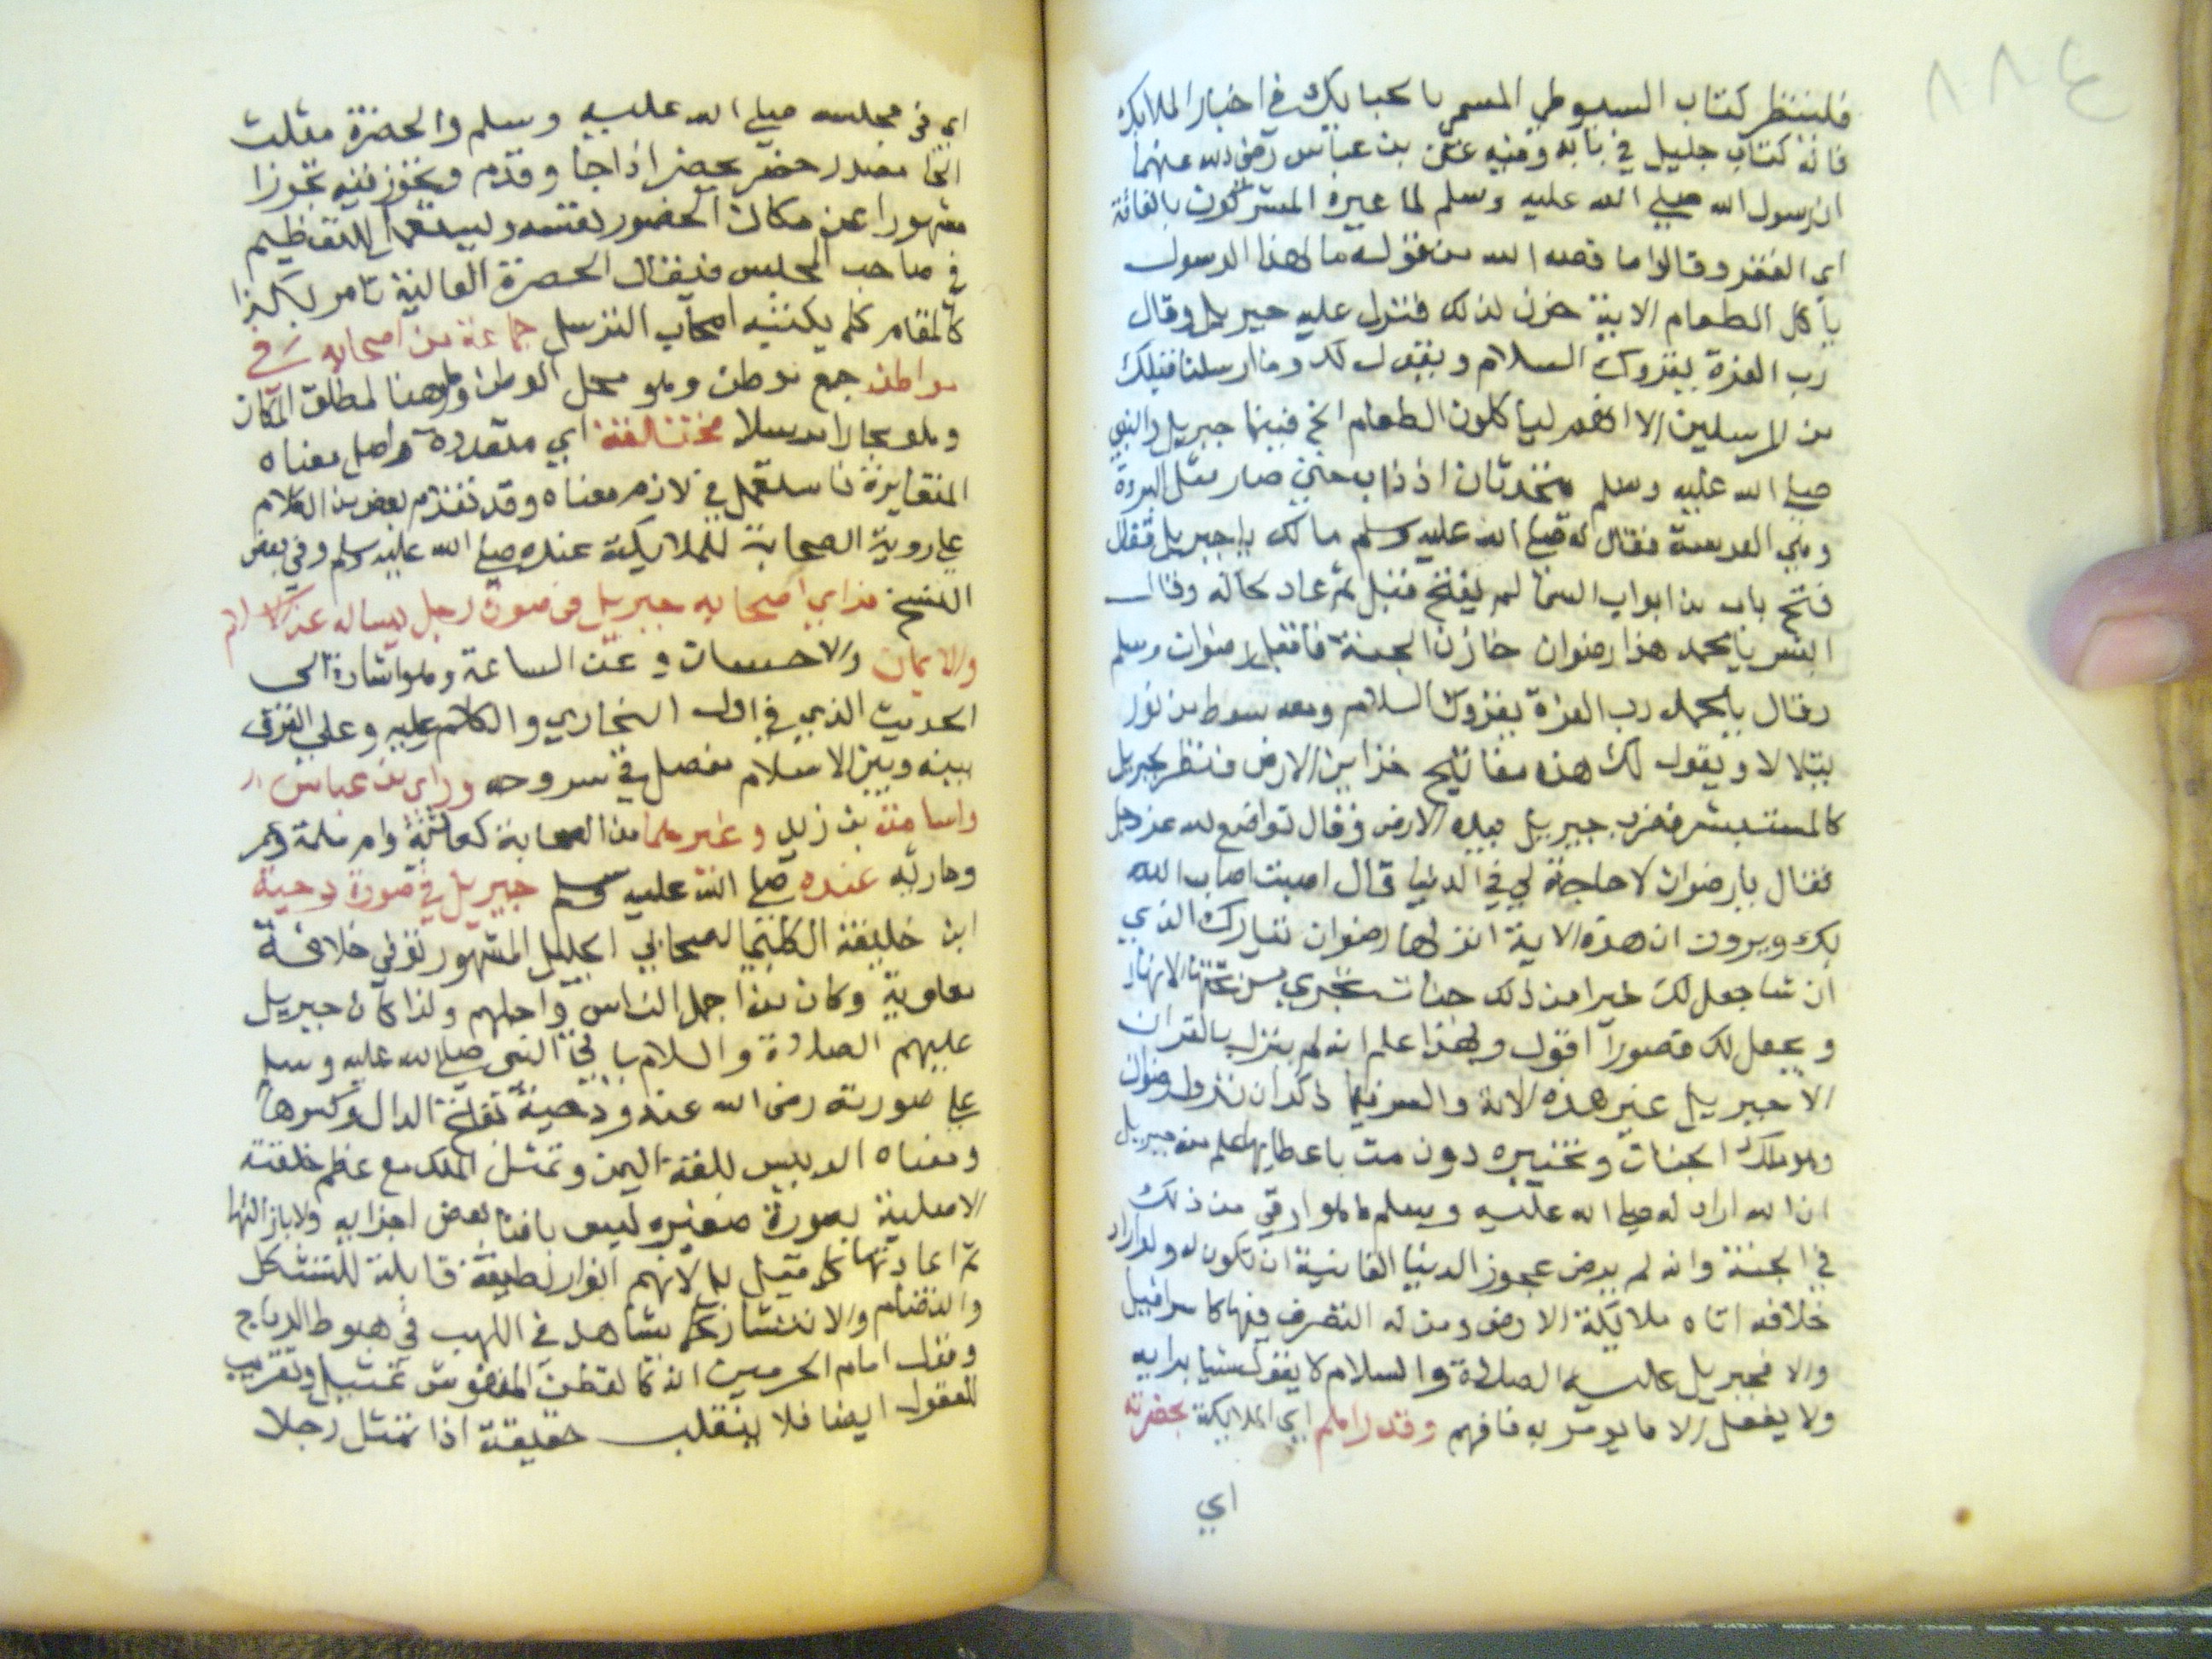 فلينظر كتاب السيوطي المسمى بالحبايك في اخبار الملايك
فانه كتاب جليل في بابه وفيه عن بن عباس رضى الله عنهما
ان رسول الله صلي الله عليه وسلم لما عيره المشركون بالفاقة
اي الفقر وقالوا ما قصه الله من قوله ما لهذا الرسول
ياكل الطعام الاية حزن لذلك فنزل عليه جبريل وقال
رب العزة يقروك السلام ويقول لك وما ارسلنا قبلك
من المرسلين الا انهم لياكلون الطعام الخ فبينما جبريل والنبي
صلي الله عليه وسلم يتحدثان اذ ذاب حتي صار مثل الهردة
وهي العدسة فقال له صلي الله عليه وسلم ما لك يا جبريل فقال
فتح باب من ابواب السما لم يفتح قبل ثم عاد كحاله وقال
ابشر يا محمد هذا رضوان خازن الجنة فاقبل رضوان وسلم
وقال يا محمد رب العزة يقروك السلام ومعه سوط من نور
يتلالا ويقول لك هذه مفاتيح خزاين الارض فنظر لجبريل
كالمستشير فضرب جبريل بيده الارض وقال تواضع لله عز وجل
فقال يا رضوان لا حاجة لي في الدنيا قال اصبت اصاب الله
بك ويرون ان هذه الاية انزلها رضوان تبارك الذي
ان شا جعل لك خيرا من ذلك جنات تجري من تحتها الانهار
ويجعل لك قصورا اقول وبهذا علم انه لم ينزل بالقران
الا جبريل غير هذه الاية والسر فيما ذكر ان نزول رضوان
وهو ملك الجنات وتخييره دون من باعطايها علم منه جبريل
ان الله اراد له صلي الله عليه وسلم ما هو ارقي من ذلك
في الجنة وانه لم يرض عجوز الدنيا الفانية ان تكون له ولو اراد
خلافه اتاه ملايكة الارض ومن له التصرف فيها كاسرافيل
والا فجبريل عليه الصلاة والسلام لا يقول شيا برايه
ولا يفعل الا ما يومر به فافهم وقد راهم اي الملايكة بحضرته
اي
اي في مجلسه صلي الله عليه وسلم والحضرة مثلث
الحا مصدر حضر يحضر اذا جا وقدم ويجوز فيه تجوزا
مشهورا عن مكان الحضور نفسه ويستعمل للتعظيم
في صاحب المجلس فيقال الحضرة العالية تامر بكذا
كالمقام كما يكتبه اصحاب الترسل جماعة من اصحابه في
مواطن جمع موطن وهو محل الوطن وهو هنا لمطلق المكان
وهو مجاز مرسل مختلفة اي متعددة واصل معناه
المتغايرة فاستعمل في لازم معناه وقد تقدم بعض من الكلام
علي روية الصحابة للملايكة عنده صلي الله عليه وسلم وفي بعض
النسخ فراي اصحابه جبريل في صورة رجل يساله عن الاسلام
والايمان والاحسان وعن الساعة وهو اشارة الى
الحديث الذي في اول البخاري والكلام عليه وعلي الفرق
بينه وبين الاسلام مفصل في شروحه وراي بن عباس
واسامة بن زيد وغيرهما من الصحابة كعائشة وام سلمة وعمر
وحارثه عنده صلي الله عليه وسلم جبريل في صورة دحية
ابن خليفة الكلبي الصحابي الجليل المشهور توفي خلافة
معاوية وكان من اجمل الناس واجلهم ولذا كان جبريل
عليهم الصلاة والسلام ياتي النبي صلي الله عليه وسلم
علي صورته رضى الله عنه ودحية بفتح الدال وكسرها
ومعناه الرييس بلغة اليمن وتمثل الملك مع عظم خلقته
الاصلية بصورة صغيره ليس بافنا بعض اجزايه ولا بازالتها
ثم اعادتها كما قيل بل لانهم انوار لطيفة قابلة للتشكل
والانضمام والانتشار كما يشاهد في اللهب في هبوط الرياح
وقول امام الحرمين انه كالقطن المنفوش تمثيل وتقريب
للعقول ايضا فلا ينقلب حقيقة اذا تمثل رجلا